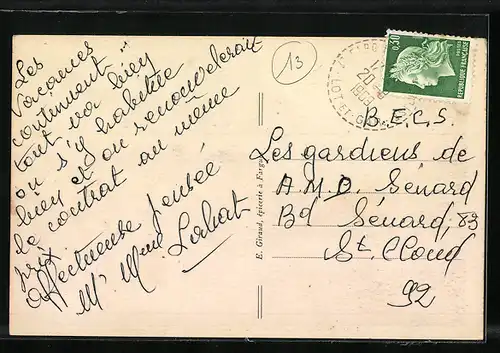 Les
vacances
continuent
tout va bien
on s'y habitue
bien et on renouvelerait
le contrat au même
prix
Affectueuse pensée
Mr Mme Labat
13
E. Giraud, épicerie à Fargues
0,30
REPUBLIQUE FRANÇAISE
LOT-ET-G
20
B.E.C.S.
Les gardiens de
A.M.D. Sénard
Bd Sénard, 83
St. Cloud
92